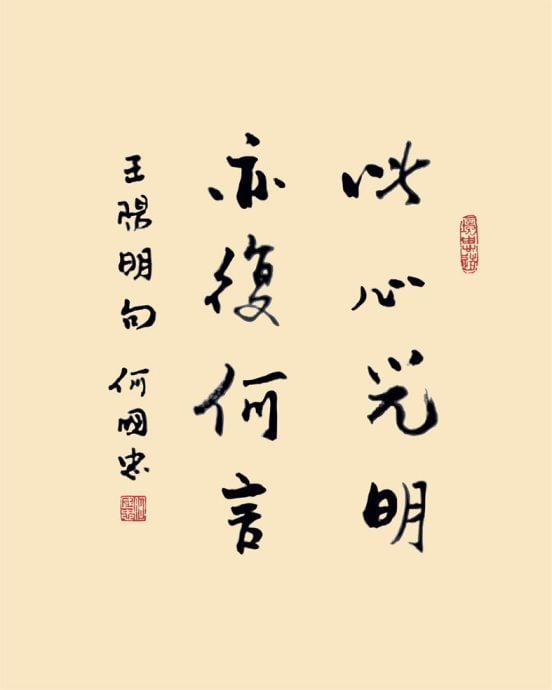 此心光明
亦復何言
王陽明句 何國忠